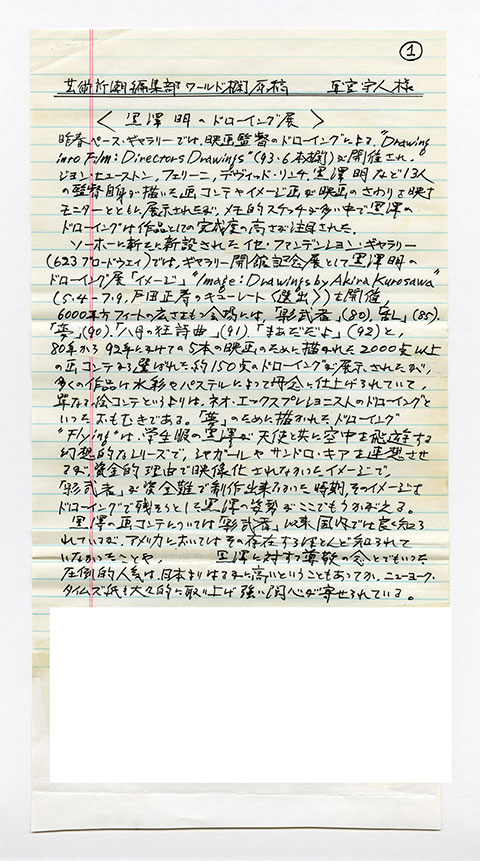 ①
芸術新潮編集部 ワールド欄原稿
〈 黒澤明のドローイング展 〉
昨春ペース・ギャラリーでは、映画監督のドローイングによる、"Drawing
into Film: Directors Drawings" (93.6本欄) が開催され、
ジョン・ヒューストン、フェリーニ、デヴィッド・リンチ、黒澤明など13人
の監督自身が描いた画コンテやイメージ画が映画のさわりを映す
モニターとともに展示されたが、メモ的スケッチが多い中で黒澤の
ドローイングは作品としての完成度の高さが注目された。
ソーホーに新たに新設された他・ファンデーション・ギャラリー
(623ブロードウェイ)では、ギャラリー開館記念展として黒澤明の
ドローイング展「イメージ」"Image: Drawings by Akira Kurosawa"
(5.4-7.9、戸田正寿のキューレート〈選出〉)を開催。
6000平方フィートの広さをもつ会場には、「影武者」(80)、「乱」(85)、
「夢」(90)、「八月の狂詩曲」(91)、「まあだだよ」(92)と、
80年から92年にかけての5本の映画のために描かれた2000点以上
の画コンテから選ばれた約150点のドローイングが展示されたが、
多くの作品は水彩やパステルによって丹念に仕上げられていて、
単なる絵コンテというよりは、ネオ・エックスプレショニストのドローイングと
いったおもむきである。「夢」のために描かれたドローイング
"Flying"は、学生服の黒澤が天使と共に空中を飛遊する
幻想的なシリーズで、シャガールやサンドロ・キアを連想させ
るが、資金的理由で映像化されなかったイメージで、
「影武者」が資金難で制作出来なかった時期、そのイメージを
ドローイングで残そうとした黒澤の姿勢がここでもうかがえる。
黒澤の画コンテについては「影武者」以来国内では良く知ら
れているが、アメリカにおいてはその存在すらほとんど知られて
いなかったことや、 黒澤に対する尊敬の念とでもいった
圧倒的人気は、日本よりはるかに高いということもあってか、ニューヨーク・
タイムズ紙も大々的に取り上げ強い関心が寄せられている。